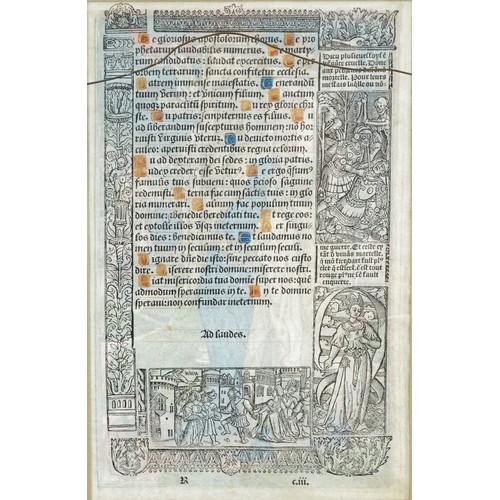 Te gloriosus apostolorum chorus. Te pro
phetarum laudabilis numerus. Te marty
rum candidatus: laudat exercitus. Te per
orbem terrarum: sancta confitetur ecclesia.
Patrem immense maiestatis. Venerandū
tuum verum: et vnicum filium. Sanctum
quoq; paraclitū spiritum. Tu rex glorie chri
ste. Tu patris: sempiternus es filius. Tu
ad liberandum suscepturus hominem: no hor
ruisti virginis vterū. Tu deuicto mortis a
culeo: aperuisti credentibus regna celorum.
Tu ad dexteram dei sedes: in gloria patris.
Iudex crederis: esse venturus. Te ergo q̄sum9
famulis tuis subueni: quos precioso sanguine
redemisti. Eterna fac cum sāctis tuis: in glo
ria numerari. Saluum fac populum tuum
domine: et benedic hereditati tue. Et rege eos:
et extolle illos vsq; in eternum. Per singu
los dies: benedicimus te. Et laudamus no
men tuum in seculum: et in seculum seculi.
Dignare dn̄e die isto: sine peccato nos custo
dire. Miserere nostri domine: miserere nostri.
Fiat misericordia tua domine super nos: que
admodum sperauimus in te. In te domine
speraui: non confundar in eternum.
Ad laudes.
Dieu plusieurs foys
cruelle.
mortelle. Pour leurs
me guerre. Et ceste
mortelle.
rouge
enquerre.
R c.iii.